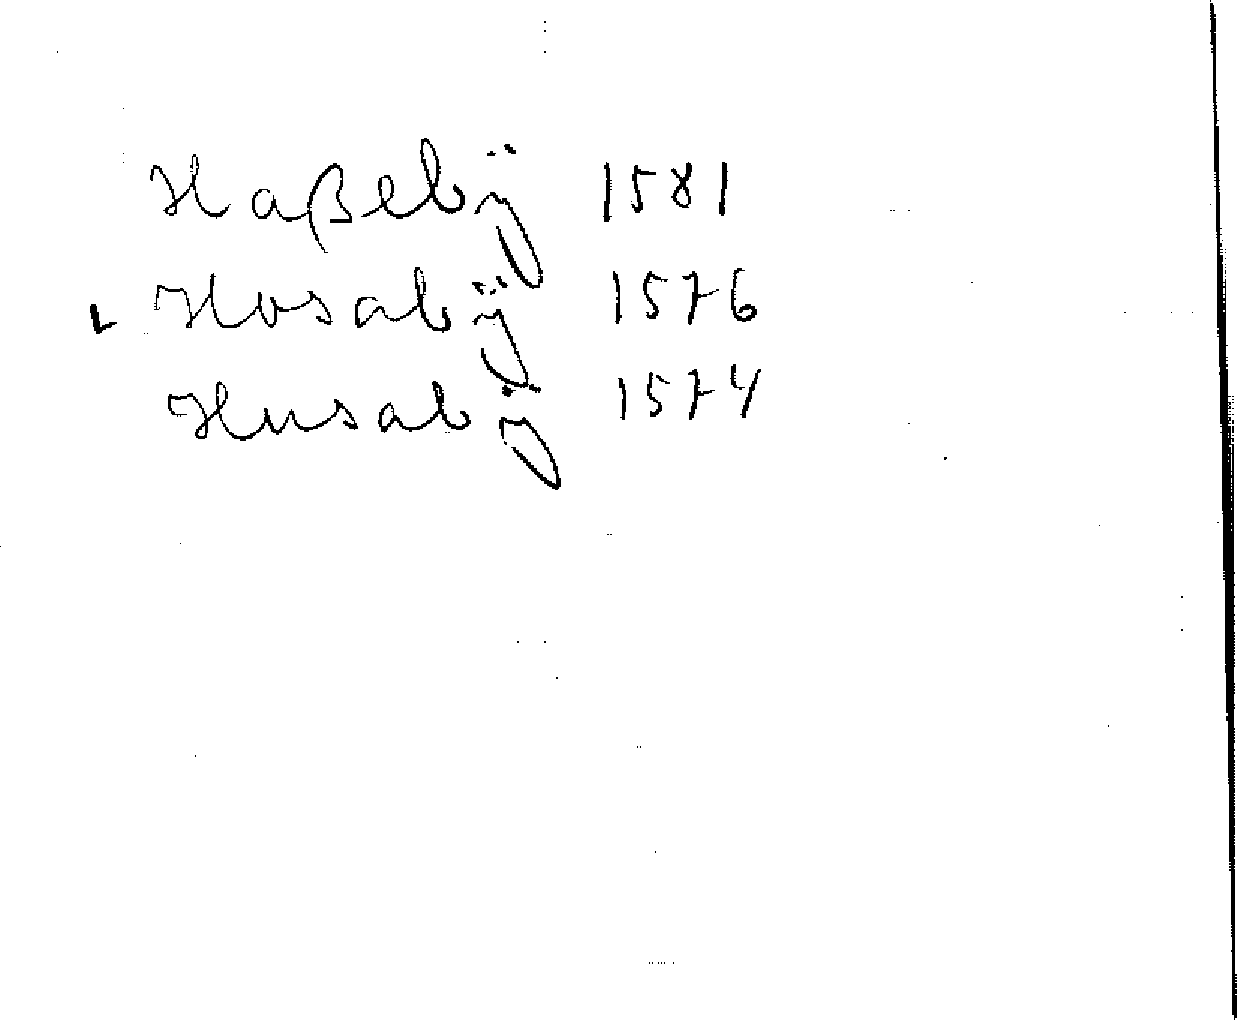 Haßebÿ 1581
Hosabÿ 1576
Husaby 1574